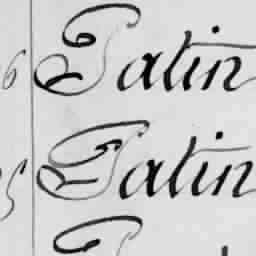 6 Patin
5 Patin